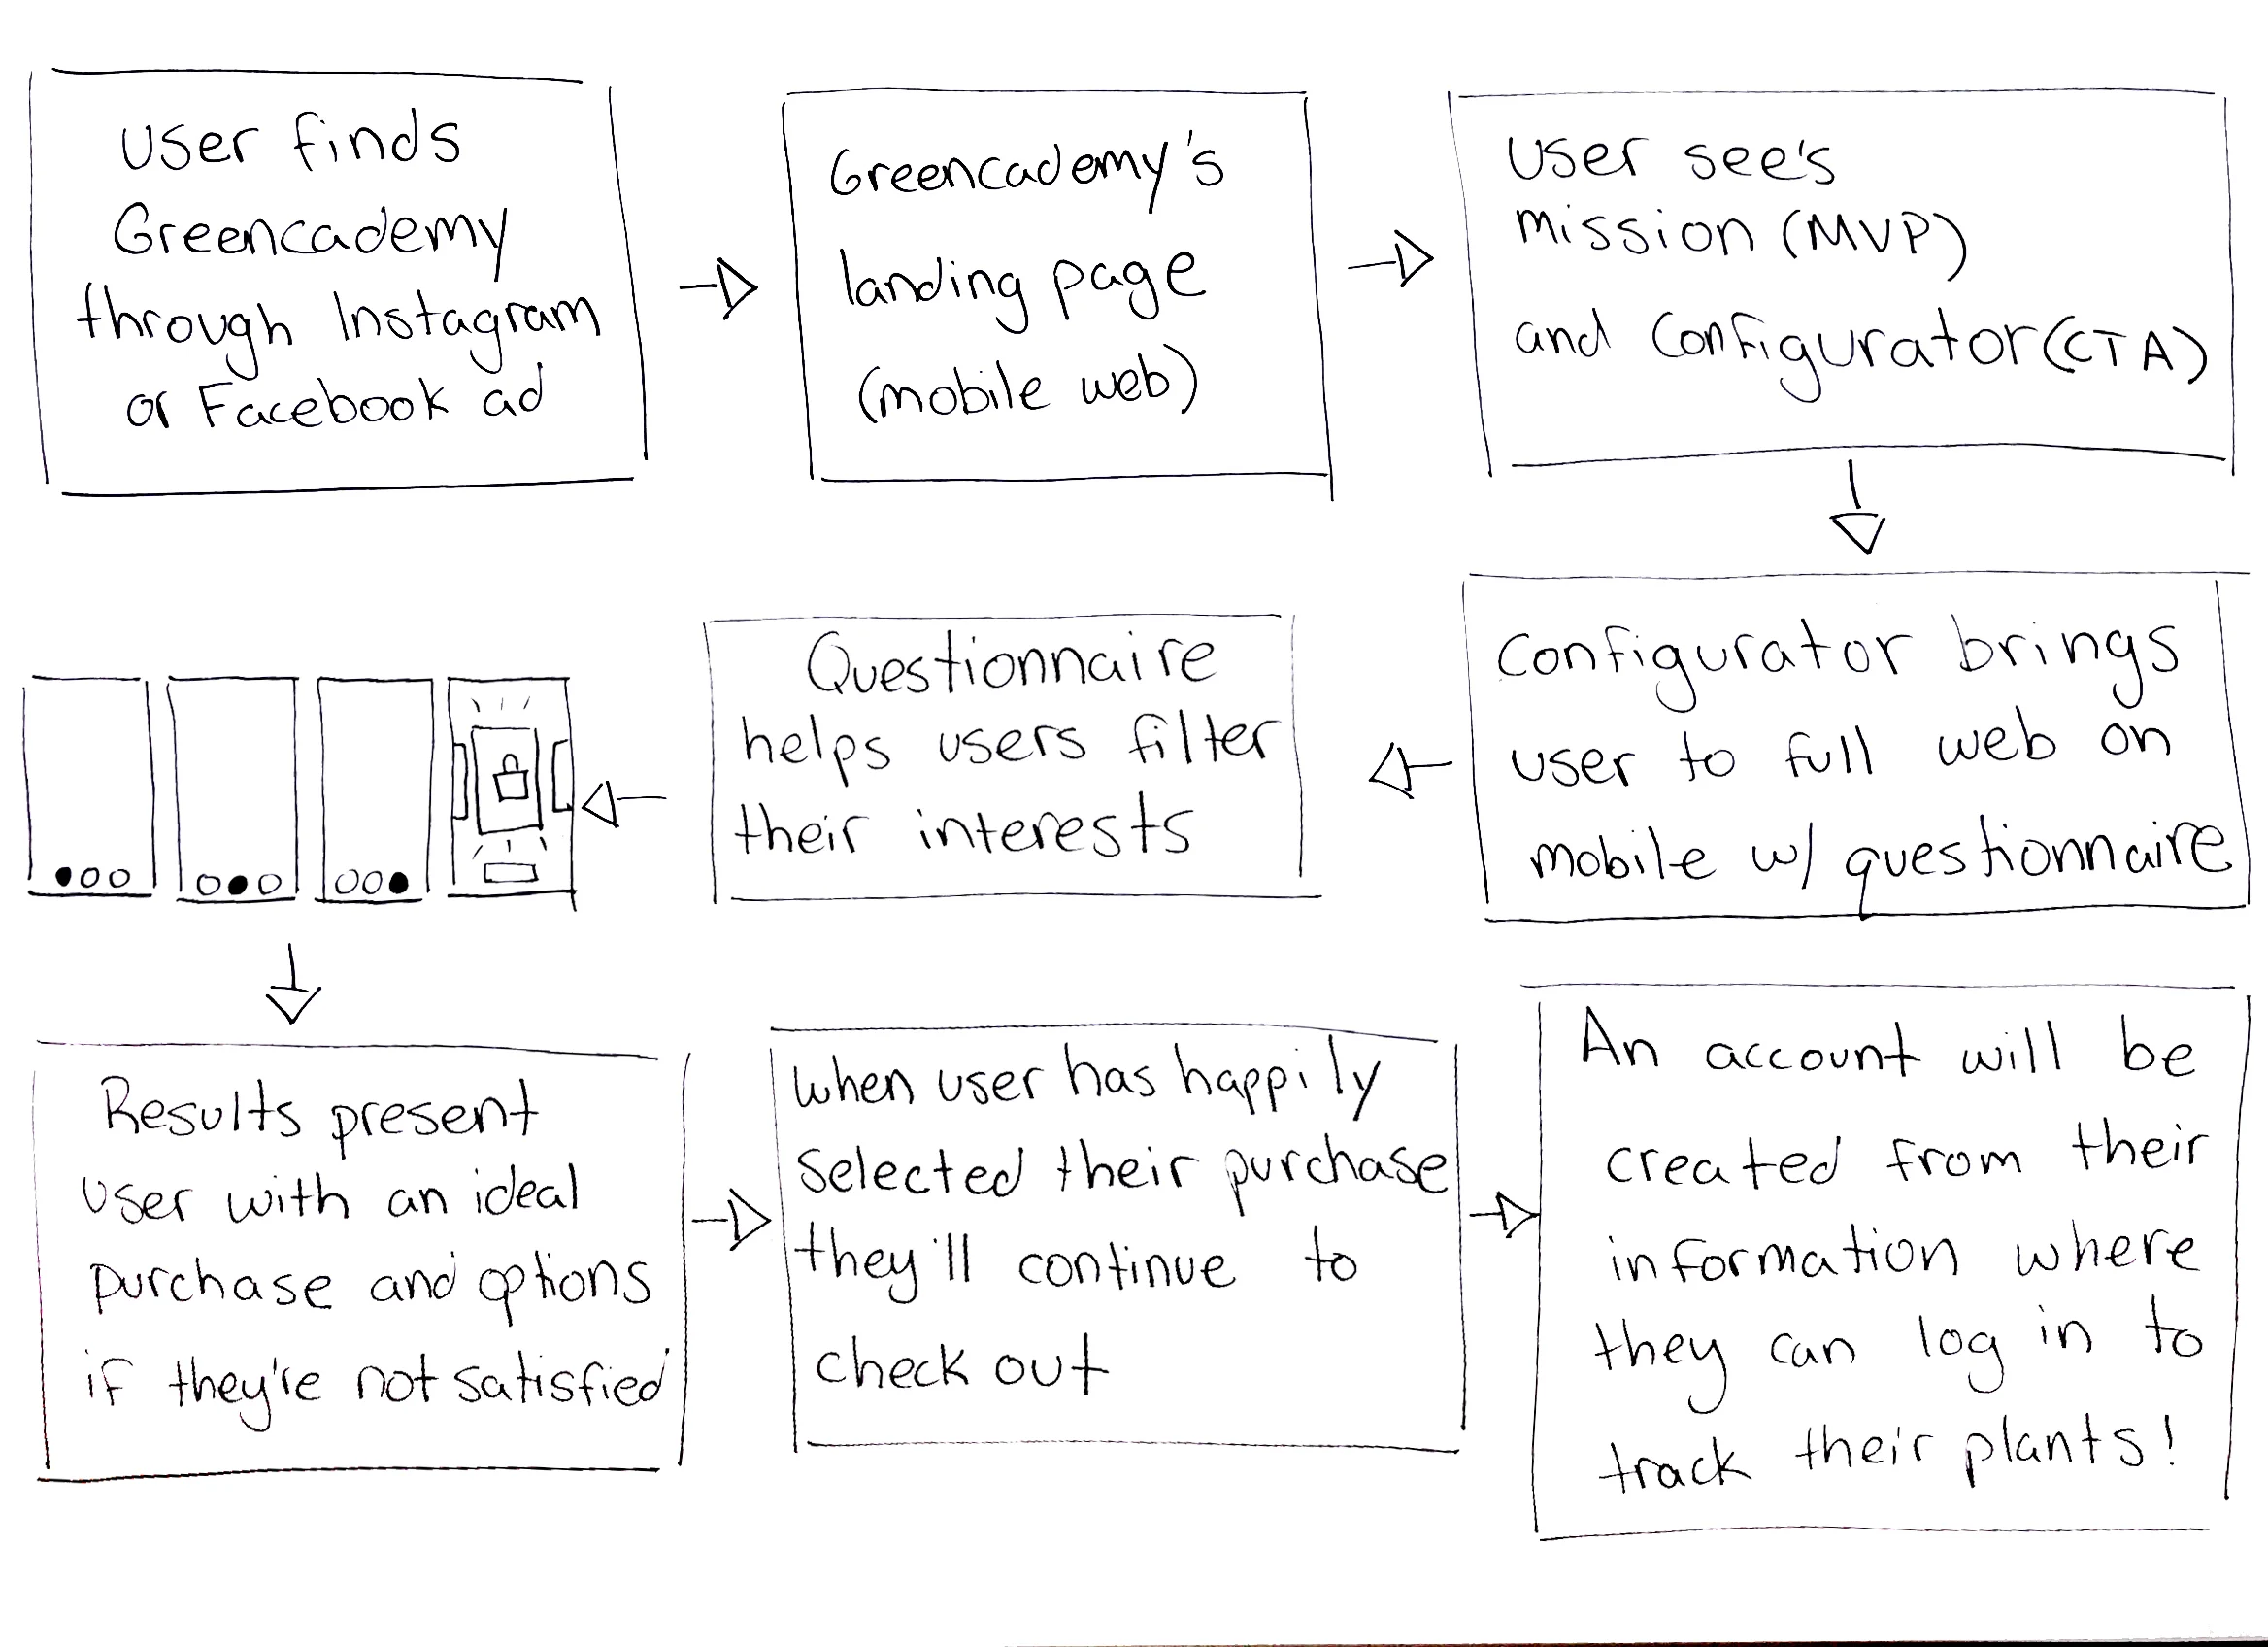 User finds
Greencademy
through Instagram
or Facebook ad
Greencademy's
landing page
(mobile web)
User see's
mission (MVP)
and Configurator (CTA)
Configurator brings
user to full web on
mobile w/ questionnaire
Questionnaire
helps users filter
their interests
Results present
user with an ideal
purchase and options
if they're not satisfied
When user has happily
selected their purchase
they'll continue to
check out
An account will be
created from their
information where
they can log in to
track their plants!